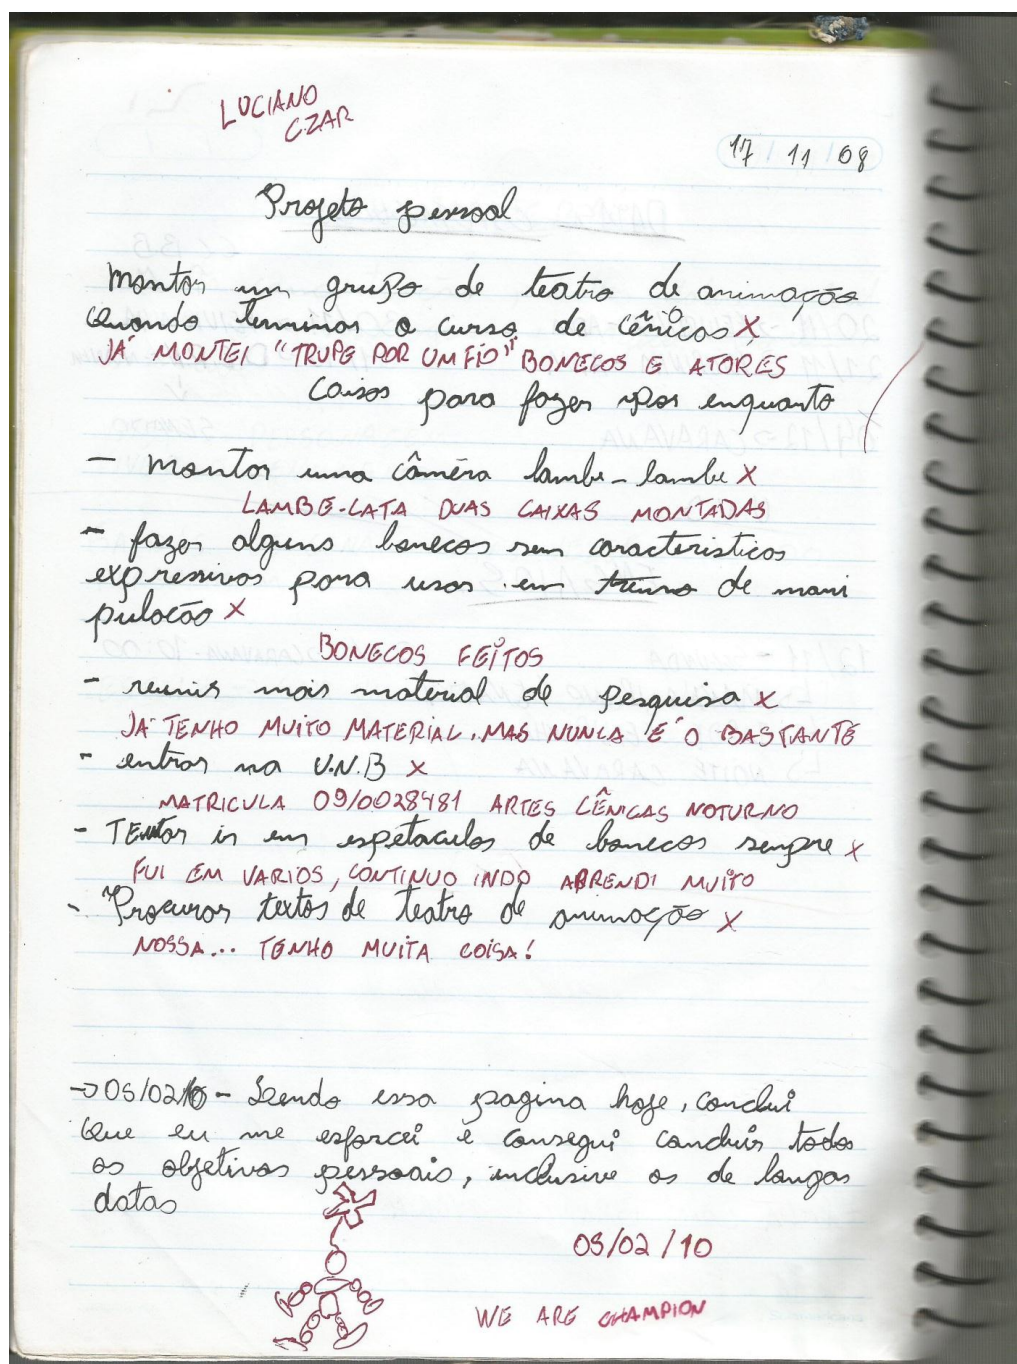 LUCIANO
CZAR
17 11 08
Projeto pessoal
Montar um grupo de teatro de animação
quando terminar o curso de cênicas X
JÁ MONTEI "TRUPE POR UM FIO" BONECOS E ATORES
Coisas para fazer por enquanto
- Montar uma câmera lambe-lambe X
LAMBE-LATA DUAS CAIXAS MONTADAS
- fazer alguns bonecos sem caracteristicas
expressivas para usar em treino de mani
pulação X
BONECOS FEITOS
- reunir mais material de pesquisa X
JÁ TENHO MUITO MATERIAL, MAS NUNCA É O BASTANTE
- entrar na U.N.B X
MATRICULA 09/0028481 ARTES CÊNICAS NOTURNO
- TEntar ir em espetaculos de bonecos sempre X
FUI EM VARIOS, CONTINUO INDO APRENDI MUITO
- Procurar textos de teatro de animação X
NOSSA... TENHO MUITA COISA!
→ 05/02/10 - Lendo essa pagina hoje, conclui
que eu me esforcei e consegui concluir todos
os objetivos pessoais, inclusive os de longas
datas
05/02/10
WE ARE CHAMPION